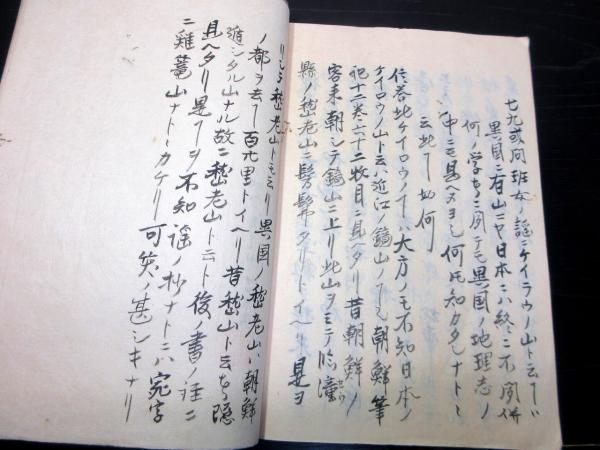 七九或問班女ノ謡ニケイラウノ山ト云フハ
異国ニ有山ニヤ日本ニハ終ニ不聞併
何ノ学者ニ聞テモ異国ノ地理志ノ
中ニモ見ヘヌヨシ何氏知カタシナト
云此丁如何
信答此ケイロウノ丁ハ大方ノモ不知日本ノ
ケイロウノ山ト云ハ近江ノ鏡山ノ丁ニ朝鮮筆
記十二巻六十二牧目ニ見ヘタリ昔朝鮮ノ
客来朝シテ鏡山ニ上リ此山ヲミテ臨潼
縣ノ嵆老山ニ髣髴タリトイヘリ是ヨ
リシテ嵆老山トモ云リ異国ノ嵆老山ハ朝鮮
ノ都ヲ去丁百廾里トイヘリ昔嵆山ト云者隠
遁シタル山ナル故ニ嵆老山ト云ト後ノ書ノ註ニ
見ヘタリ是丁ヲ不知謡ノ抄ナトニハ宛字
ニ雞籠山ナトトカケリ可笑ノ甚シキナリ